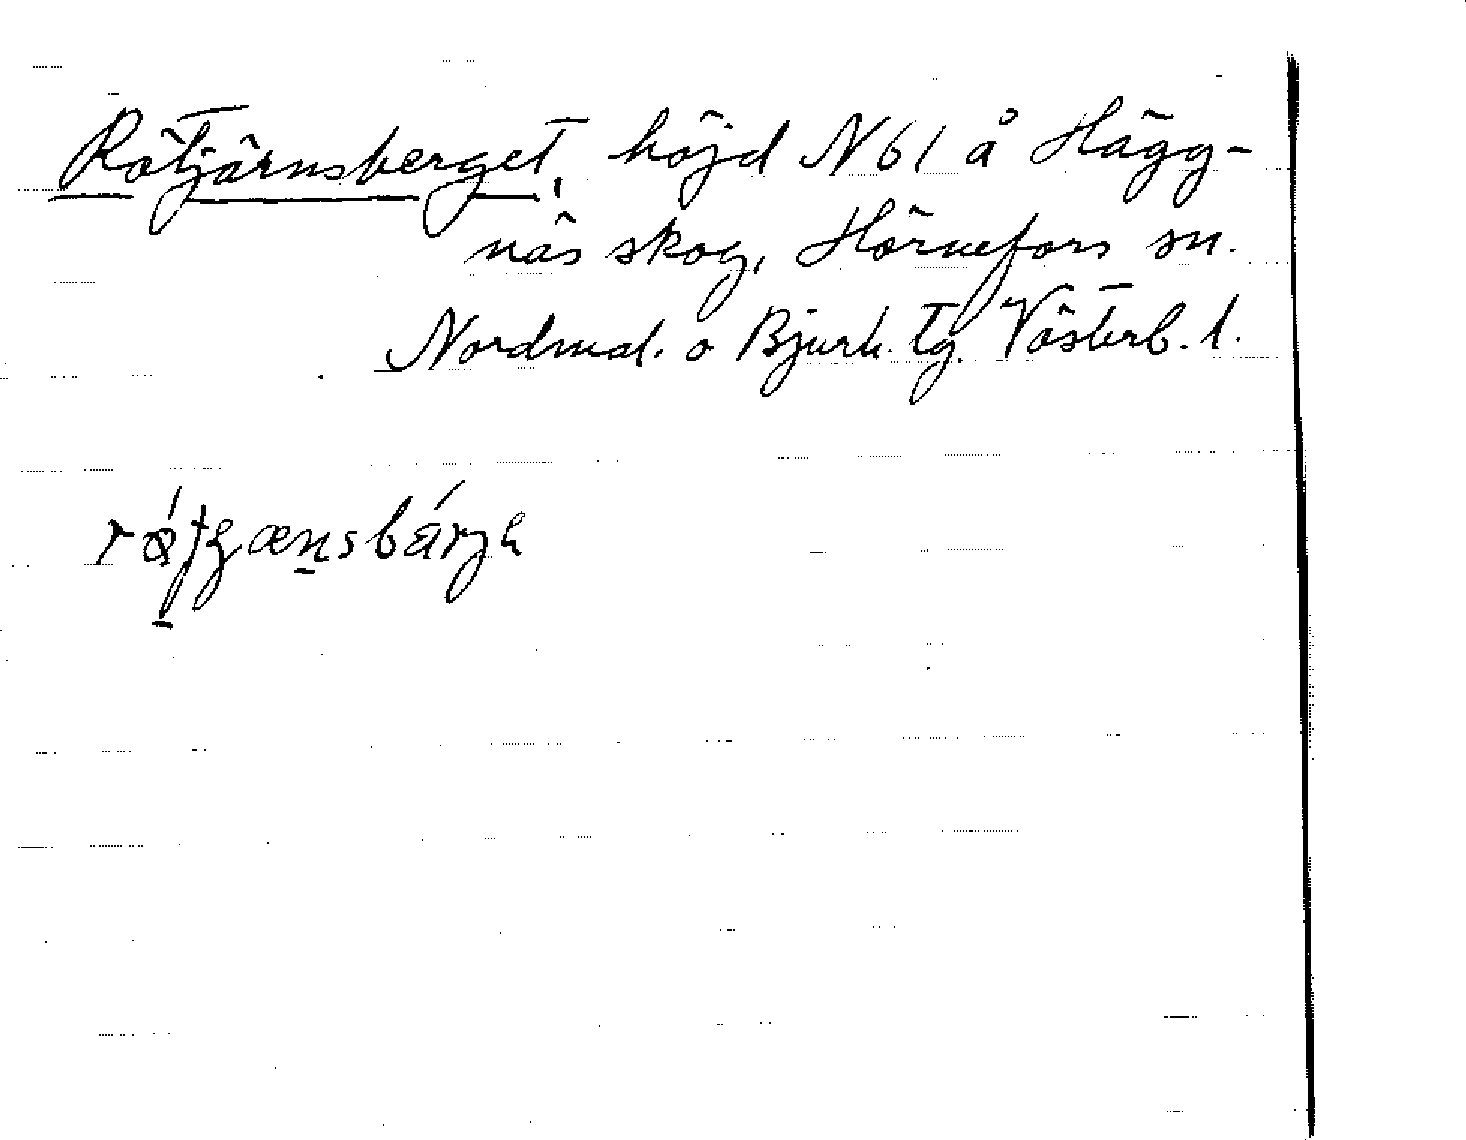 Rötjärnsberget, höjd N61 å Hägg-
näs skog, Hörnefors sn.
Nordmal. o Bjurh. tg. Västerb. l.